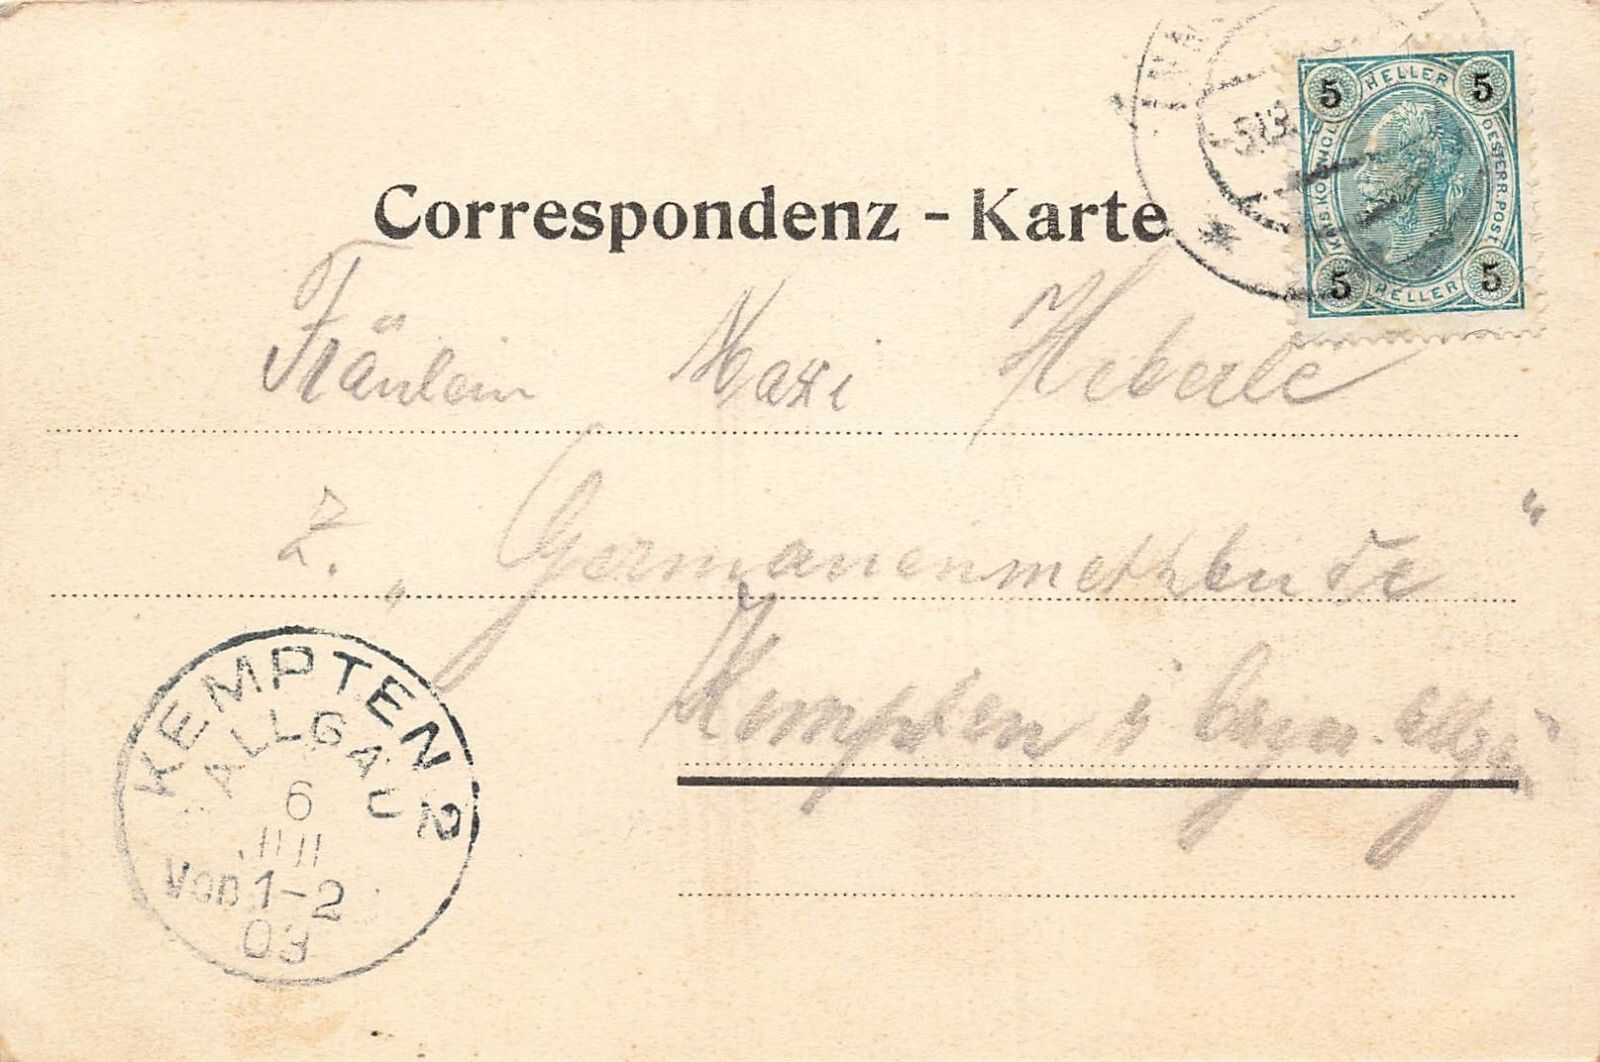 HELLER
5 5
KAIS. KÖNIGL. OESTERR. POST.
5 5
HELLER
Correspondenz - Karte
Fräulein Maxi Heberle
z. „Germanenmethbude“
Kempten i Bayr. Allgäu
KEMPTEN 2
ALLGÄU
6
VOR 1-2
03